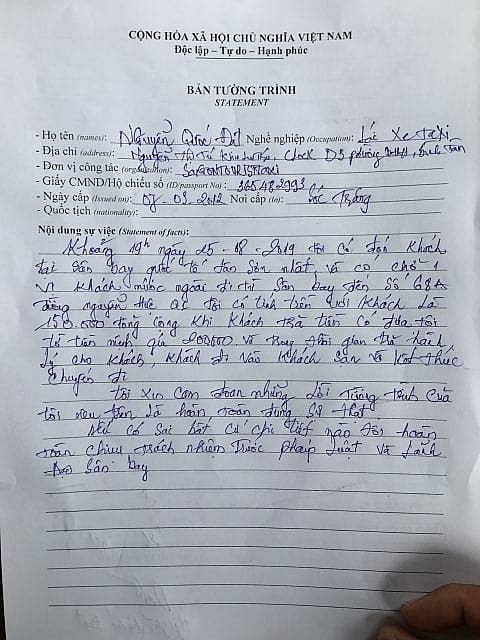 CỘNG HÒA XÃ HỘI CHỦ NGHĨA VIỆT NAM
Độc lập – Tự do – Hạnh phúc
BẢN TƯỜNG TRÌNH
STATEMENT
- Họ tên (names): Nguyễn Quốc Đạt Nghề nghiệp (Occupation): Lái xe taxi
- Địa chỉ (address): Nguyễn Thị Tú Khu, Block D3 phường, Bình Tân
- Đơn vị công tác (organisation): SAIGONTOURIST TAXI
- Giấy CMND/Hộ chiếu số (ID/passport No): 365482993
- Ngày cấp (Issued on): 07-03-2012 Nơi cấp (in): Sóc Trăng
- Quốc tịch (nationality):
Nội dung sự việc (Statement of facts):
Khoảng 19h ngày 25-08-2019 tôi có đón khách
tại sân bay quốc tế tân sơn nhất và có chở 1
vị khách nước ngoài đi từ sân bay đến số 68A
đường nguyễn huệ Q1 tôi có tính tiền với khách là
150.000 đồng cộng khi khách trả tiền có đưa tôi
tờ tiền mệnh giá 200000 và trong thời gian trả hành
lý cho khách, khách đi vào khách sạn và kết thúc
chuyến đi
tôi xin cam đoan những lời tường trình của
tôi nêu trên là hoàn toàn đúng sự thật.
Nếu có sai bất cứ chi tiết nào tôi hoàn
toàn chịu trách nhiệm trước pháp luật và lãnh
đạo sân bay